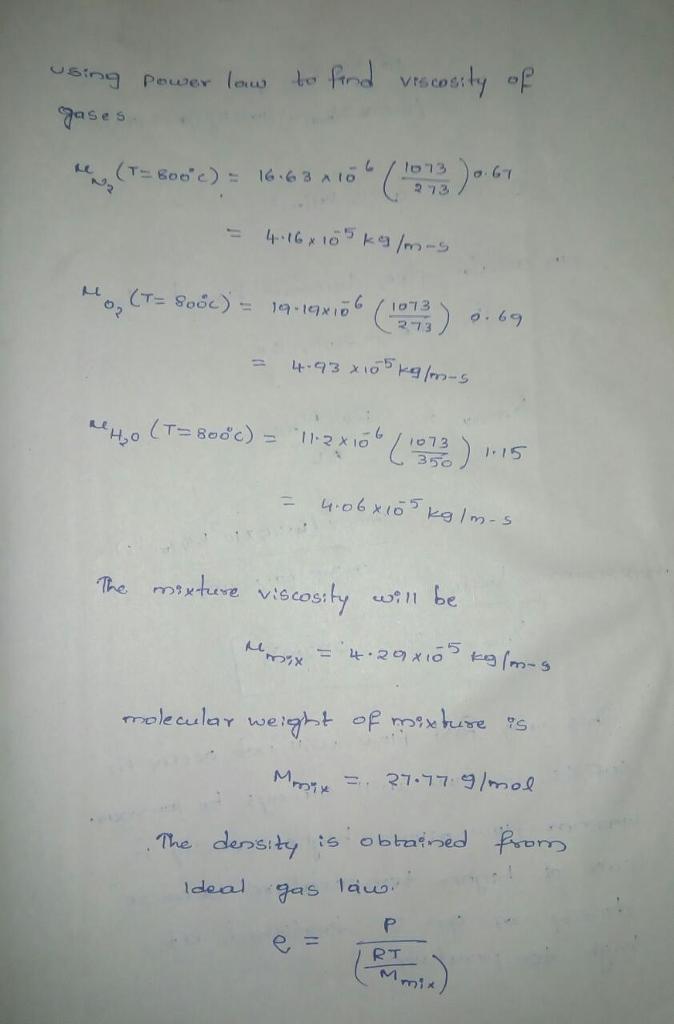 using power law to find viscosity of
gases
μN₂ (T=800°c) = 16.63 x 10⁻⁶ (1073/273) 0.67
= 4.16 x 10⁻⁵ kg/m-s
μO₂ (T=800°c) = 19.19x10⁻⁶ (1073/273) 0.69
= 4.93 x10⁻⁵ kg/m-s
μH₂O (T=800°c) = 11.2 x 10⁻⁶ (1073/350) 1.15
= 4.06 x10⁻⁵ kg/m-s
The mixture viscosity will be
μmix = 4.29 x10⁻⁵ kg/m-s
molecular weight of mixture is
Mmix = 27.77 g/mol
The density is obtained from
Ideal gas law.
e = P/(RT/Mmix)